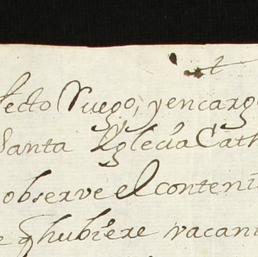 fecto Ruego, y encargo
Santa Yglecia Cath
observe el conteni
e q hubiere vacan